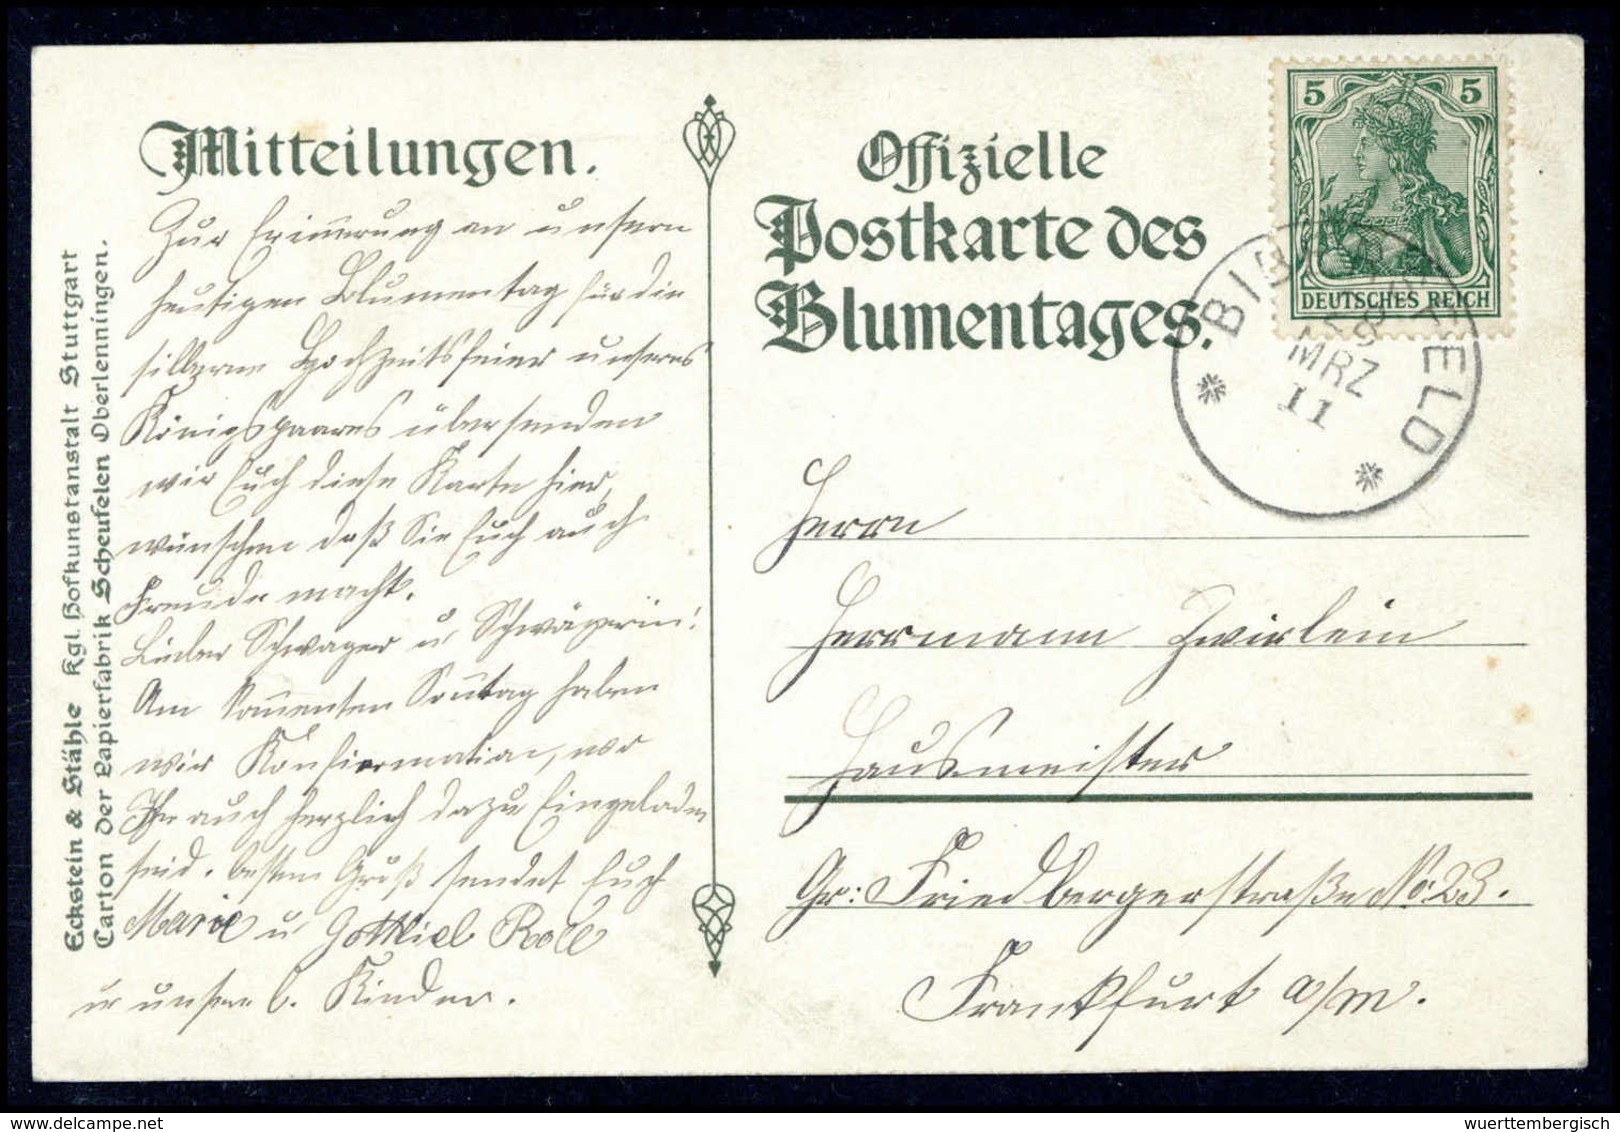 Mitteilungen.
Zur Erinnerung an unsern
heutigen Blumentag für die
silberne Hochzeitsfeier unseres
Königspaares übersenden
wir Euch diese Karte hier,
wünschen daß Sie Euch auch
Freude macht.
Lieber Schwager u. Schwägerin!
Am kommenten Sontag haben
wir Konfirmation, wo
Ihr auch herzlich dazu Eingeladen
seid. besten Gruß sendet Euch
Marie u Gottliel Roll
u unsere 6. Kinder.
Eckstein & Stähle Kgl. Hofkunstanstalt Stuttgart
Carton der Papierfabrik Scheufelen Oberlenningen.
Offizielle
Postkarte des
Blumentages.
5 5
DEUTSCHES REICH
ELD
MRZ
11
Herrn
Herrmann Zwirlein
Hausmeister
Gr: Friedbergerstraße No: 23.
Frankfurt a/m.
wuerttembergisch